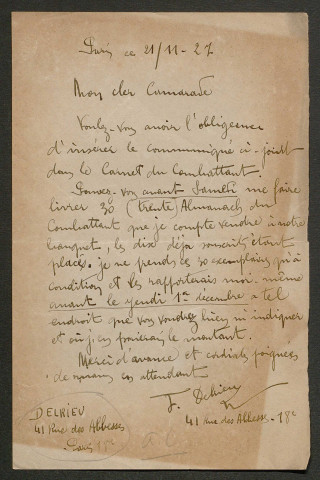 Paris ce 21/11-27
Mon cher Camarade
Voulez-vous avoir l'obligeance
d'insérer le communiqué ci-joint
dans le Carnet du Combattant.
Pouvez-vous avant Samedi me faire
livrer 30 (trente) Almanach du
Combattant que je compte vendre à notre
banquet, les dix déjà souscrits étant
placés. je ne prends les 30 exemplaires qu'à
condition et les rapporterais moi-même
avant le jeudi 1er décembre à tel
endroit que vous voudrez bien m'indiquer
et où j'en paierai le montant.
Merci d'avance et cordiales poignées
de mains en attendant
J. Delrieu
41 Rue des Abbesses-18e
DELRIEU
41 Rue des Abbesses
Paris